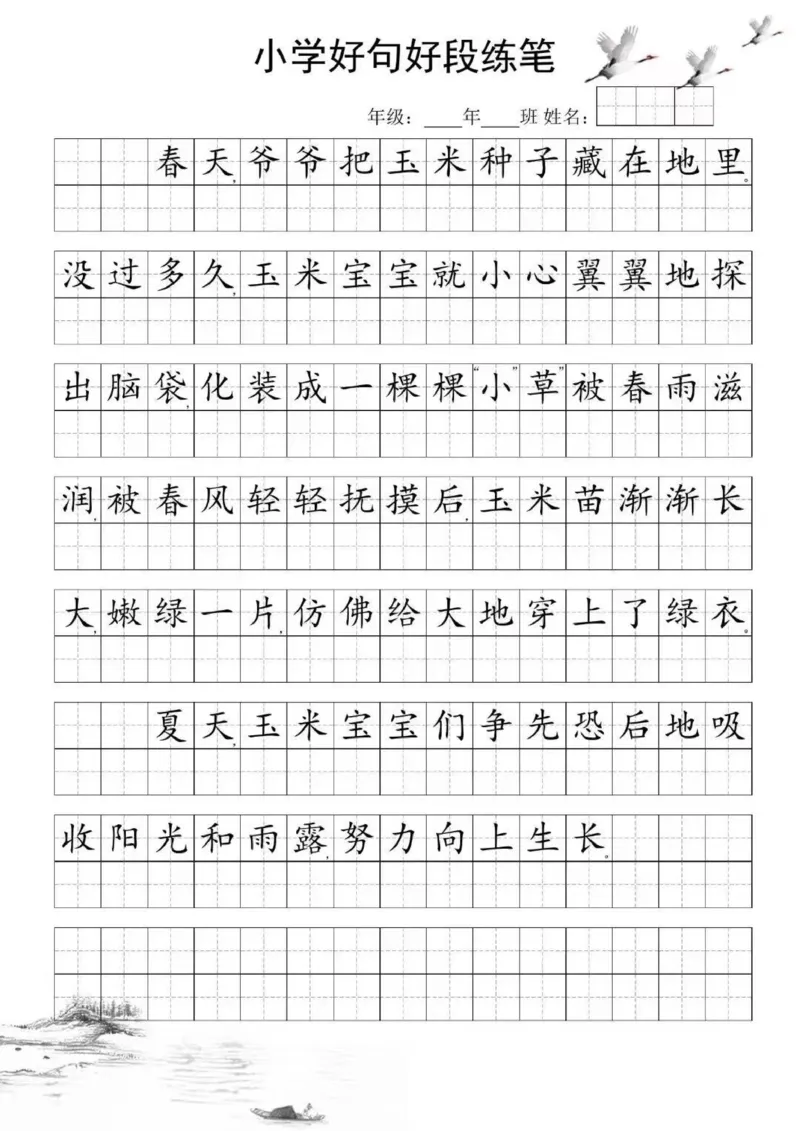 小学好句好段练笔
年级：____年____班 姓名：
春天，爷爷把玉米种子藏在地里。
没过多久，玉米宝宝就小心翼翼地探
出脑袋，化装成一棵棵“小”草”被春雨滋
润，被春风轻轻抚摸后，玉米苗渐渐长
大，嫩绿一片，仿佛给大地穿上了绿衣。
夏天，玉米宝宝们争先恐后地吸
收阳光和雨露，努力向上生长。